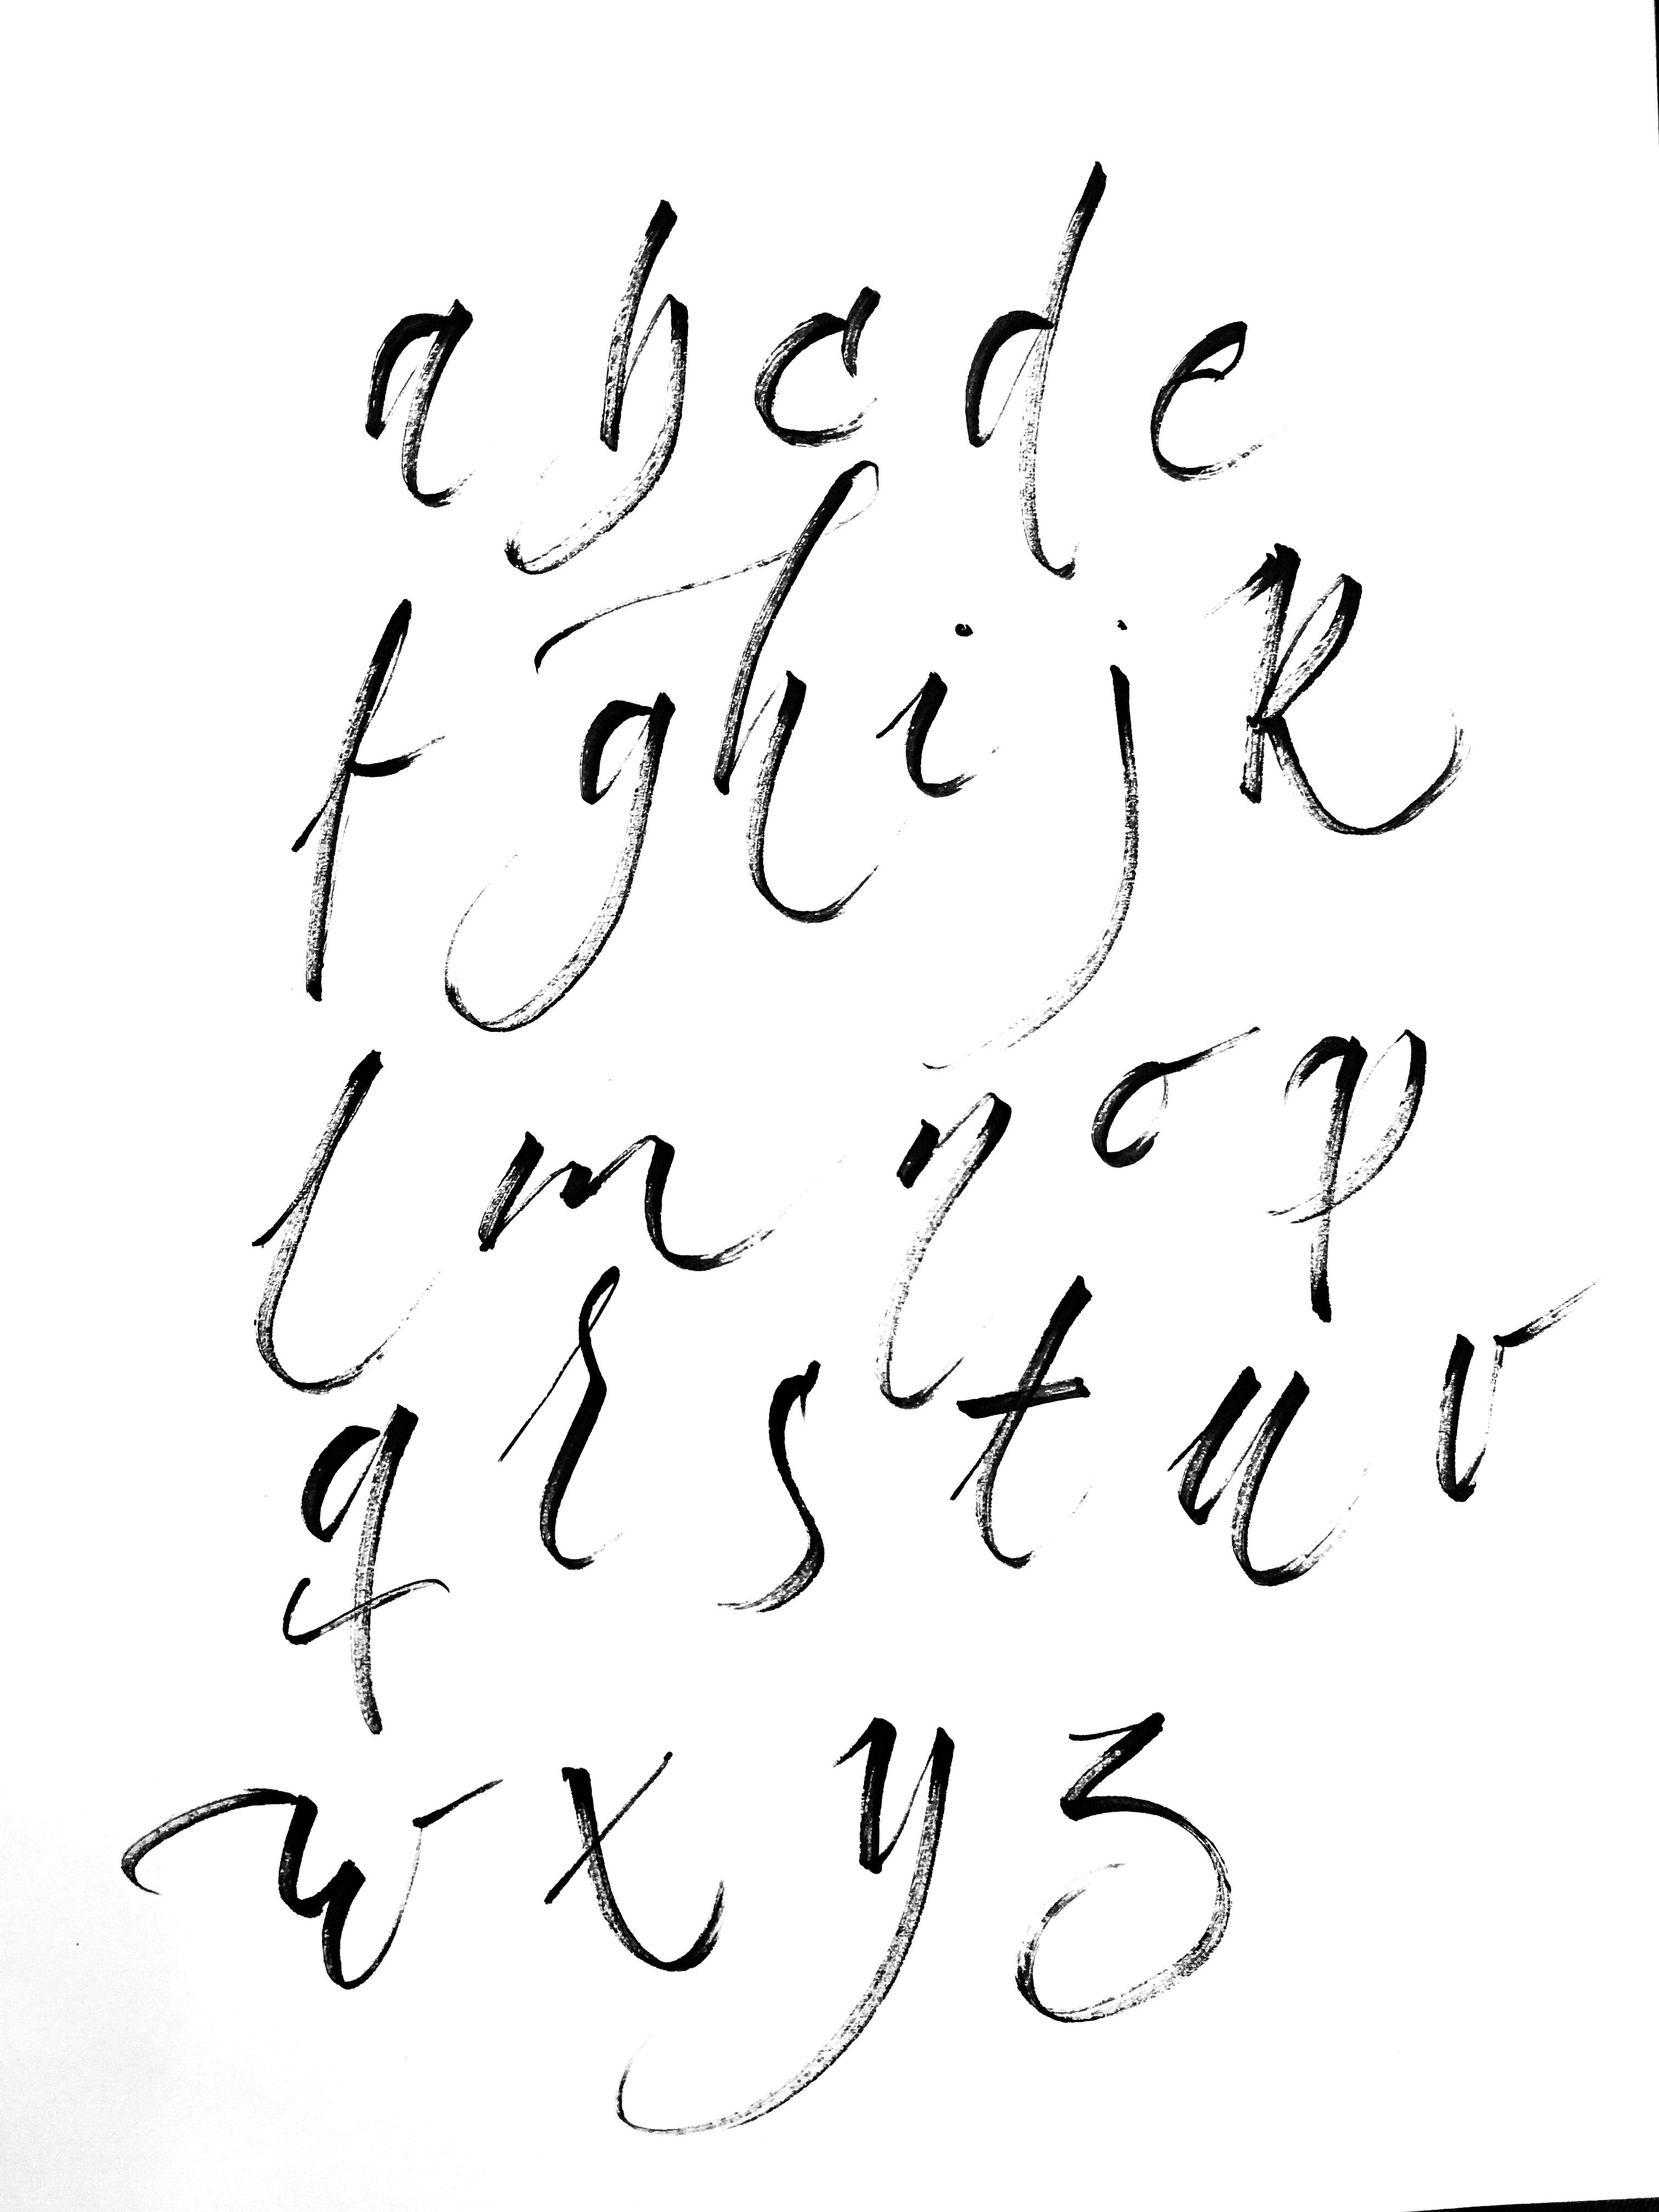 a b c d e
f g h i j k
l m n o p
q r s t u v
w x y z